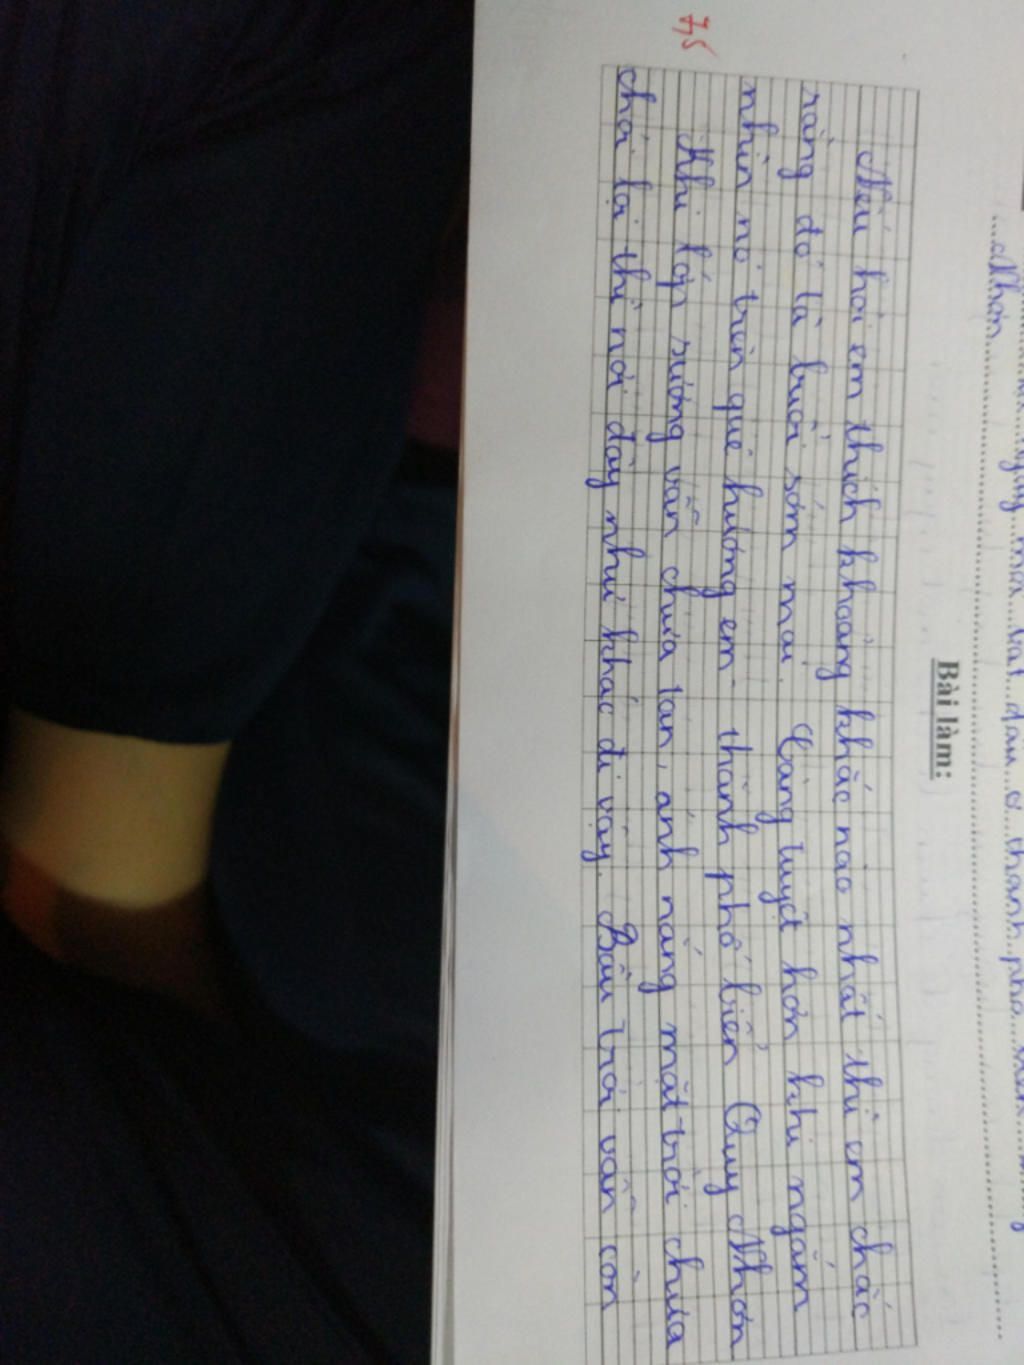 ngày mới bắt đầu ở thành phố
Nhơn
Bài làm:
Nếu hỏi em thích khoảng khắc nào nhất thì em chắc
rằng đó là buổi sớm mai. Càng tuyệt hơn khi ngắm
nhìn nó trên quê hương em - thành phố biển Quy Nhơn
Khi lớp sương vẫn chưa tan, ánh nắng mặt trời chưa
chói lọi thì nơi đây như khác đi vậy. Bầu trời vẫn còn
7,5